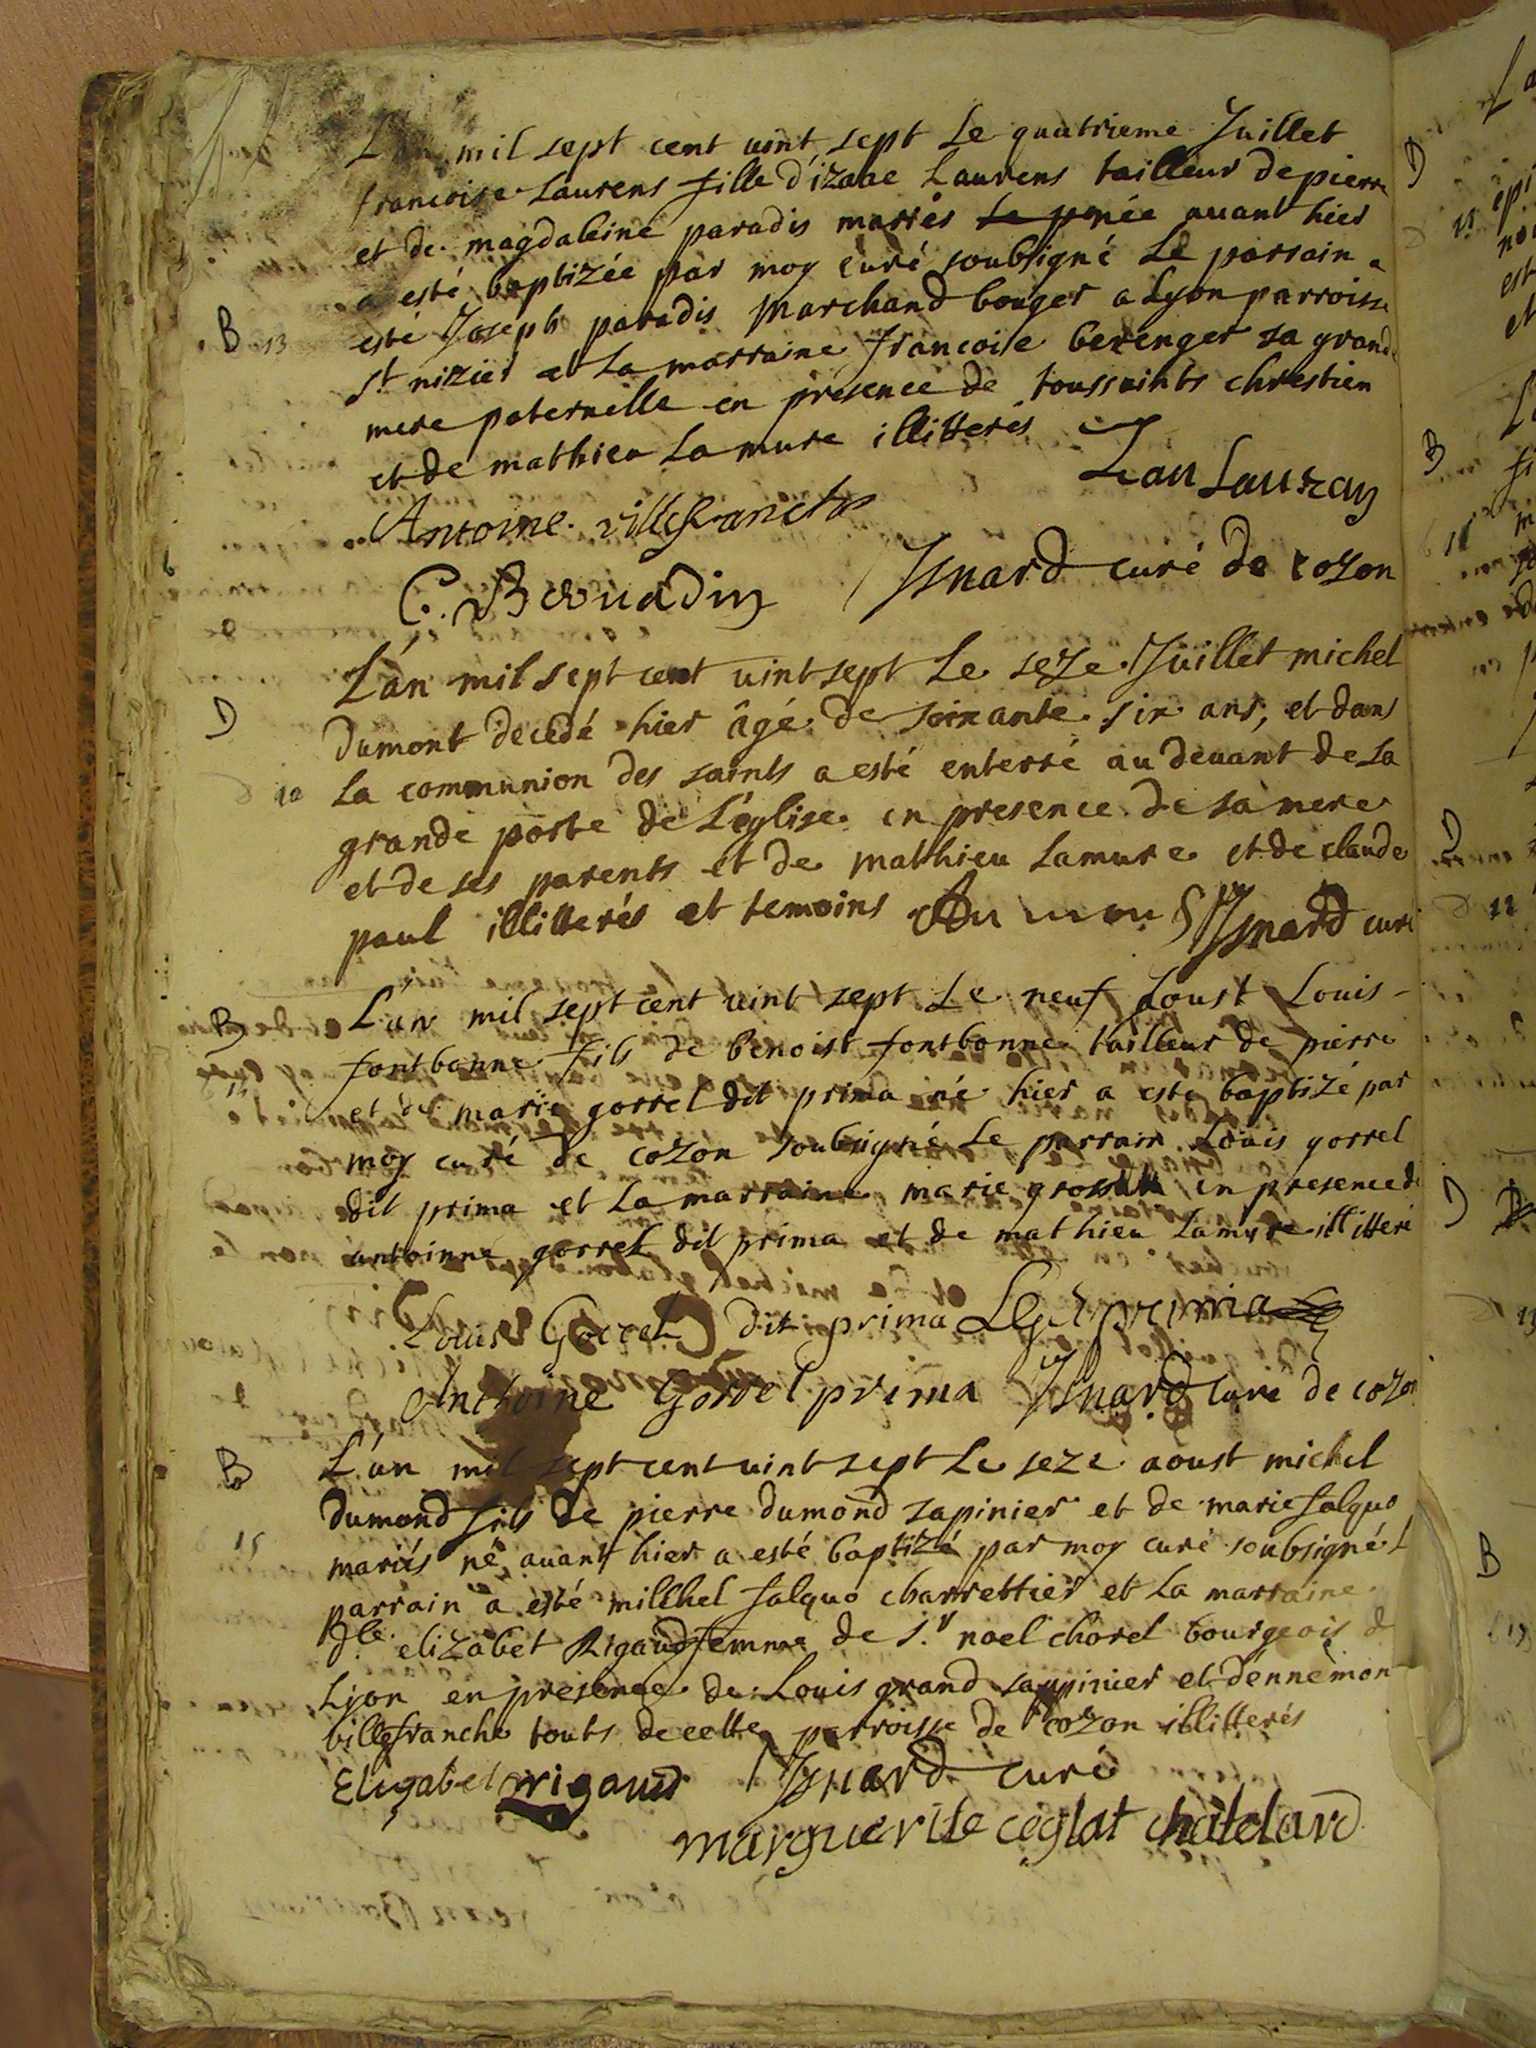 L'an mil sept cent vint sept Le quatrieme Juillet
francoise Laurens fille d'izaae Laurens tailleur de pierre
et de magdaleine paradis mariés avant hier
a esté baptizée par moy curé soubsigné Le parrain a
B 13 esté Joseph paradis marchand bouger a Lyon parroisse
St nizier et La marraine francoise berenger sa grande
mere paternelle en présence de toussaints chrestien
et de mathieu Lamure illitterés
Antoine villefranche
C. Beoudin Isnard curé de cozon
L'an mil sept cent vint sept Le seze Juillet michel
D dumont decedé hier âgé de soixante six ans, et dans
10 La communion des saints a esté enterré au devant de La
grande porte de L'église en presence de sa mere
et de ses parents et de mathieu Lamure et de claude
paul illitterés et temoins Isnard curé
B L'an mil sept cent vint sept Le neuf Aoust Louis
fontbonne fils de benoist fontbonne tailleur de pierre
et de marie gorrel dit prima né hier a este baptizé par
moy curé de cozon soubsigné Le parrain Louis gorrel
dit prima et La marraine marie en presence de
antoinne gorrel dit prima et de mathieu Lamure illitteré
Louis Gorrel dit prima
Anthoine Gorrel prima Isnard curé de cozon
B L'an mil sept cent vint sept Le seze aoust michel
dumond fils de pierre dumond sapinier et de marie falquo
15 mariés né avant hier a esté baptizé par moy curé soubsigné L
parrain a esté milchel falquo charrettier et La marraine
dle. elizabet Rigaud femme de s.r noel chorel bourgeois d
Lyon en presence de Louis grand sappinier et d'ennemon
villefranche touts de cette parroisse de cozon illitterés
Elizabet rigaud Isnard curé
marguerite ceglat chatelard